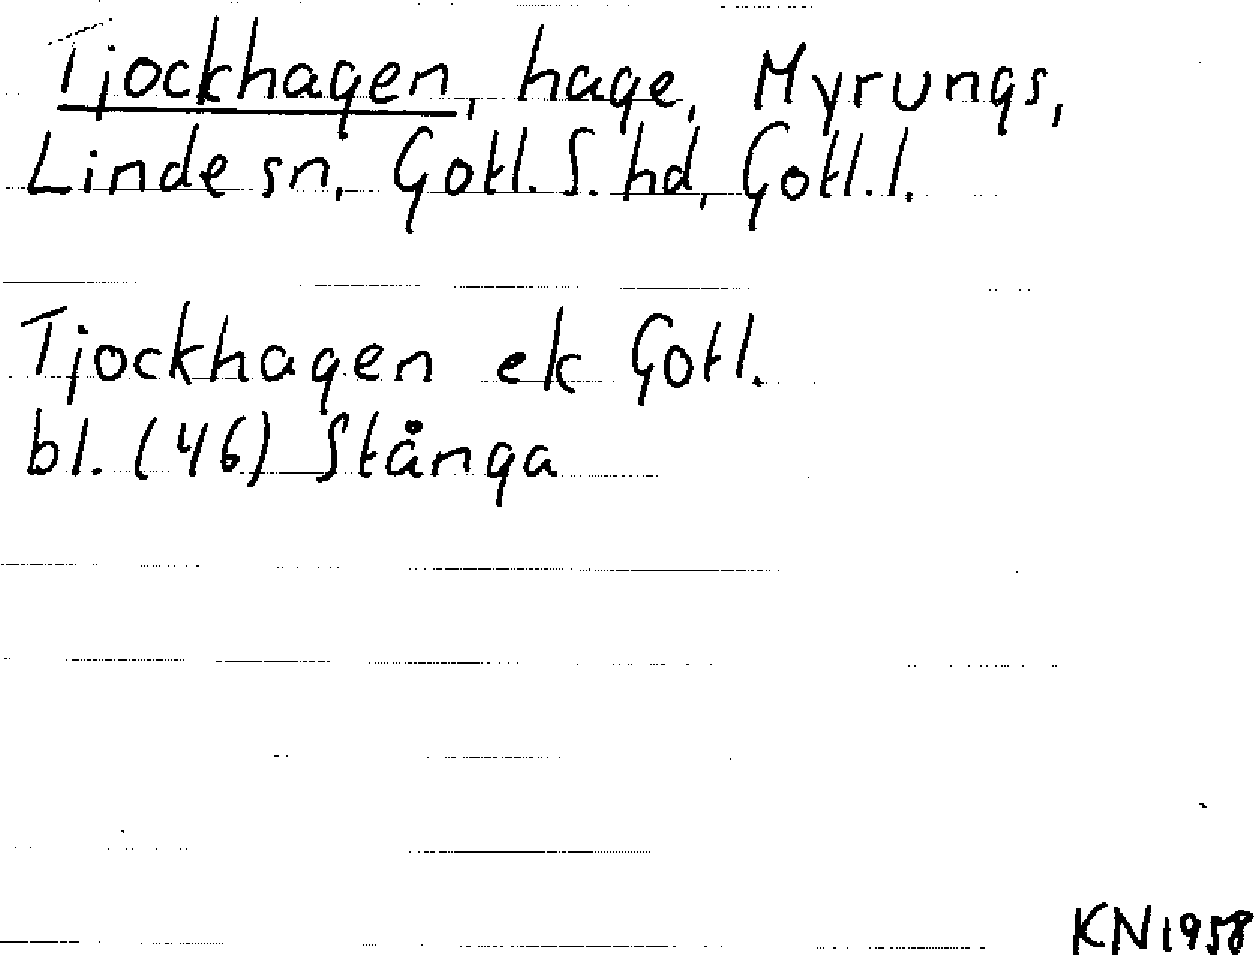 Tjockhagen, hage, Myrungs,
Linde sn, Gotl. S. hd, Gotl. l.
Tjockhagen ek Gotl.
bl. (46) Stånga
KN1958